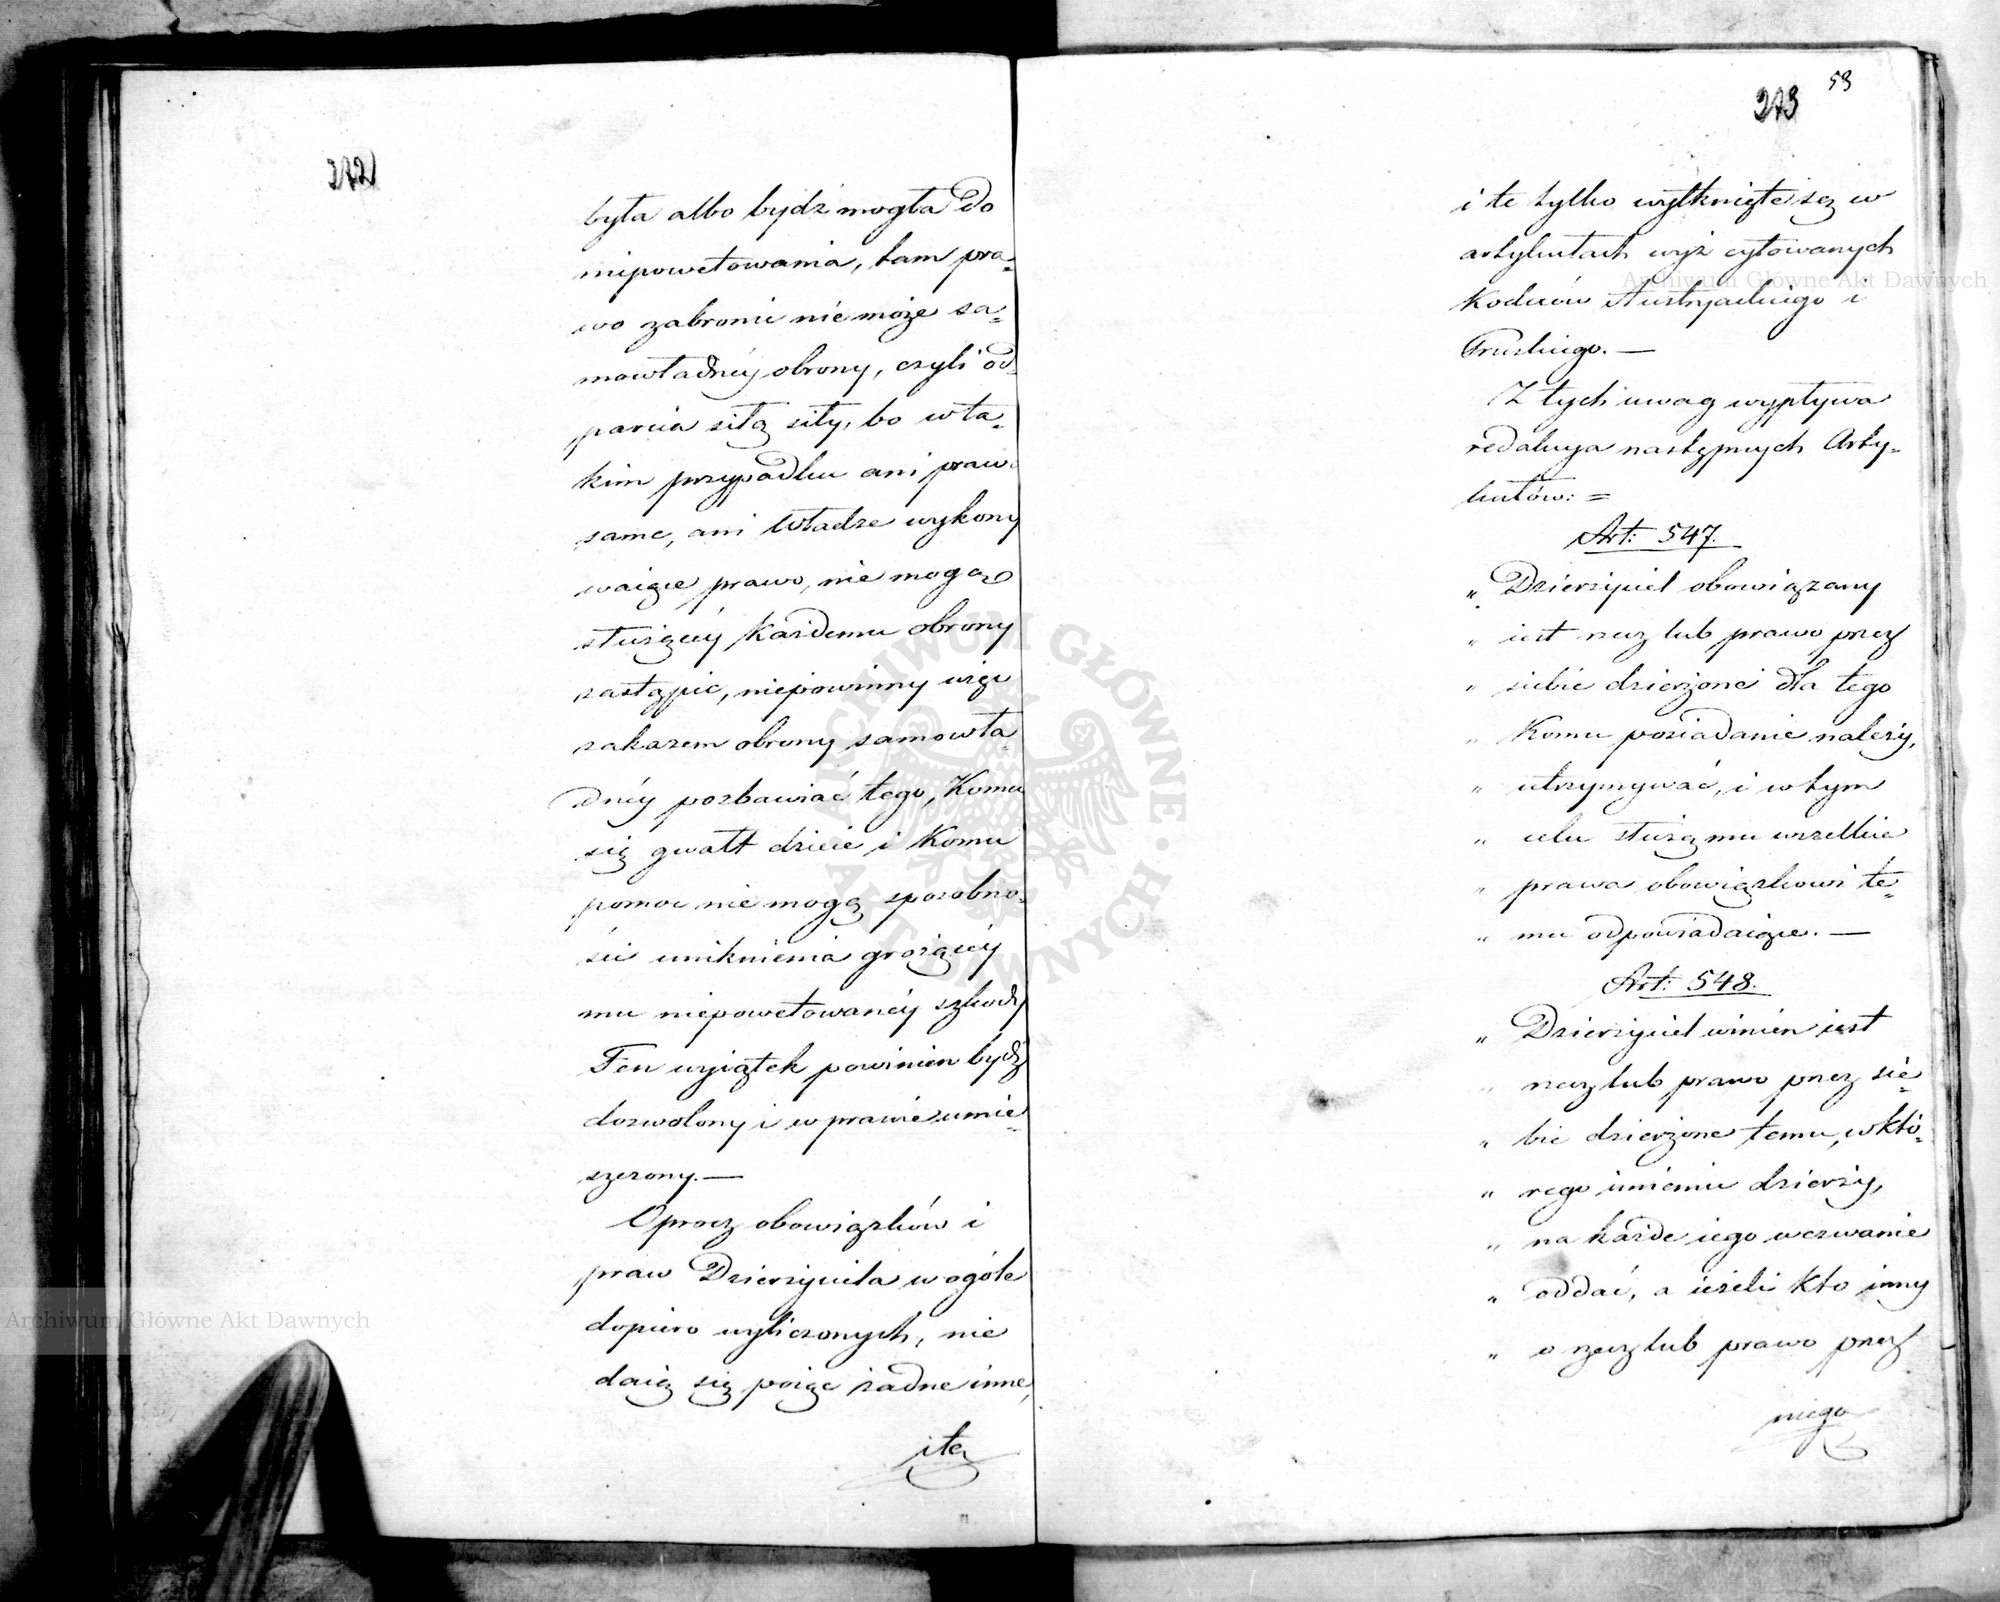 272
była albo bydź mogła do
niepowetowania, tam pra=
wo zabronić nie może sa=
mowładnéy obrony, czyli od=
parcia siłą siły, bo w ta=
kim przypadku ani prawo
same, ani Władze wykony
waiące prawo, nie mogąc
służącéy każdemu obrony
zastąpić, niepowinny więc
zakazem obrony samowła=
dnéy pozbawiać tego, Komu
się gwałt dzieie i Komu
pomoc nie mogą sposobno=
ści uniknienia grożącéy
mu niepowetowanéy szkody
Ten wyiątek powinien bydź
dozwolony i w prawie umie=
szczony.—
Oprocz obowiązków i
praw Dzierzyciela w ogóle
dopiero wyliczonych, nie
daią się poiąć żadne inne,
i te
53
273
i te tylko wytknięte są w
artykułach wyż cytowanych
Kodexów Austryackiego i
Pruskiego.—
Z tych uwag wypływa
redakcya następnych Arty=
kułów: =
Art: 547.
„ Dzierzyciel obowiązany
„ iest rzecz lub prawo przez
„ siebie dzierżone dla tego
„ Komu posiadanie należy,
„ utrzymywać, i w tym
„ celu służą mu wszelkie
„ prawa obowiązkowi te=
„ mu odpowiadaiące.—
Art: 548.
„ Dzierzyciel winien iest
„ rzecz lub prawo przez sie=
„ bie dzierżone temu, w któ=
„ rego imieniu dzierży,
„ na każde iego wezwanie
„ oddać, a ieżeli kto inny
„ o rzecz lub prawo przez
niego
Archiwum Główne Akt Dawnych
Archiwum Główne Akt Dawnych
ARCHIWUM GŁÓWNE · AKT DAWNYCH ·